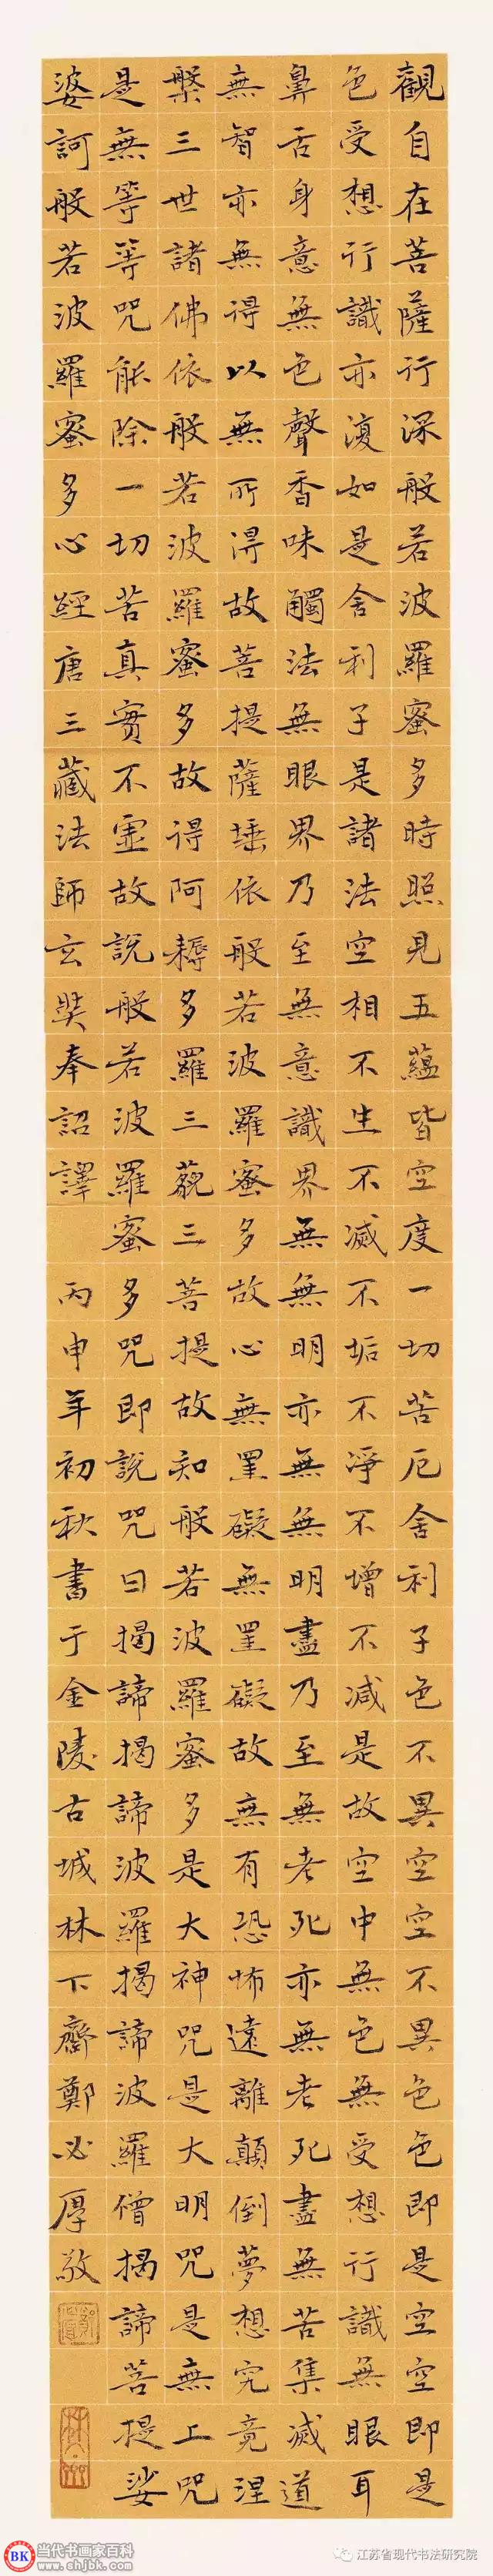 觀自在菩薩行深般若波羅蜜多時照見五蘊皆空度一切苦厄舍利子色不異空空不異色色即是空空即是
色受想行識亦復如是舍利子是諸法空相不生不滅不垢不淨不增不減是故空中無色無受想行識無眼耳
鼻舌身意無色聲香味觸法無眼界乃至無意識界無無明亦無無明盡乃至無老死亦無老死盡無苦集滅道
無智亦無得以無所得故菩提薩埵依般若波羅蜜多故心無罣礙無罣礙故無有恐怖遠離顛倒夢想究竟涅
槃三世諸佛依般若波羅蜜多故得阿耨多羅三藐三菩提故知般若波羅蜜多是大神咒是大明咒是無上咒
是無等等咒能除一切苦真實不虛故說般若波羅蜜多咒即說咒曰揭諦揭諦波羅揭諦波羅僧揭諦菩提娑
婆訶般若波羅蜜多心經唐三藏法師玄奘奉詔譯 丙申年初秋書于金陵古城林下齋鄭必厚敬
BK 当代书画家百科
www.shjbk.com
江苏省现代书法研究院